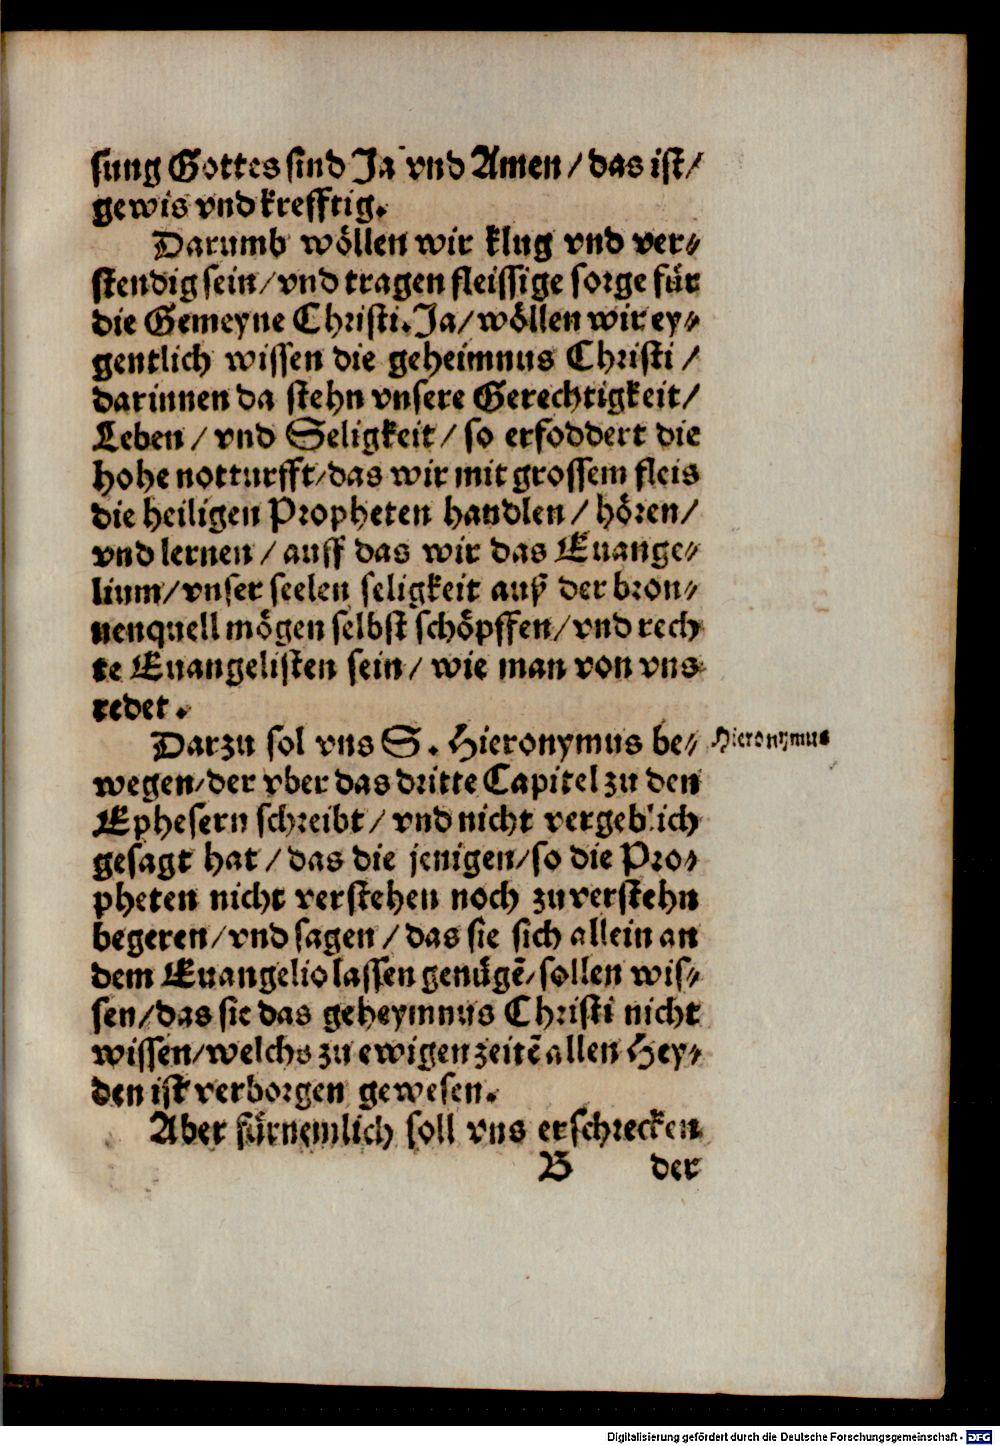 sung Gottes sind Ja vnd Amen / das ist /
gewis vnd krefftig.
Darumb wöllen wir klug vnd ver⸗
stendig sein / vnd tragen fleissige sorge für
die Gemeyne Christi. Ja / wöllen wir ey⸗
gentlich wissen die geheimnus Christi /
darinnen da stehn vnsere Gerechtigkeit /
Leben / vnd Seligkeit / so erfoddert die
hohe notturfft / das wir mit grossem fleis
die heiligen Propheten handlen / hören /
vnd lernen / auff das wir das Euange⸗
lium / vnser seelen seligkeit auß der bron⸗
nenquell mögen selbst schöpffen / vnd rech
te Euangelisten sein / wie man von vns
redet.
Darzu sol vns S. Hieronymus be⸗
Hieronymus
wegen / der vber das dritte Capitel zu den
Ephesern schreibt / vnd nicht vergeblich
gesagt hat / das die jenigen / so die Pro⸗
pheten nicht verstehen noch zuverstehn
begeren / vnd sagen / das sie sich allein an
dem Euangelio lassen genügẽ / sollen wis⸗
sen / das sie das geheymnus Christi nicht
wissen / welchs zu ewigen zeitẽ allen Hey⸗
den ist verborgen gewesen.
Aber fürnemlich soll vns erschrecken
B der
Digitalisierung gefördert durch die Deutsche Forschungsgemeinschaft - DFG